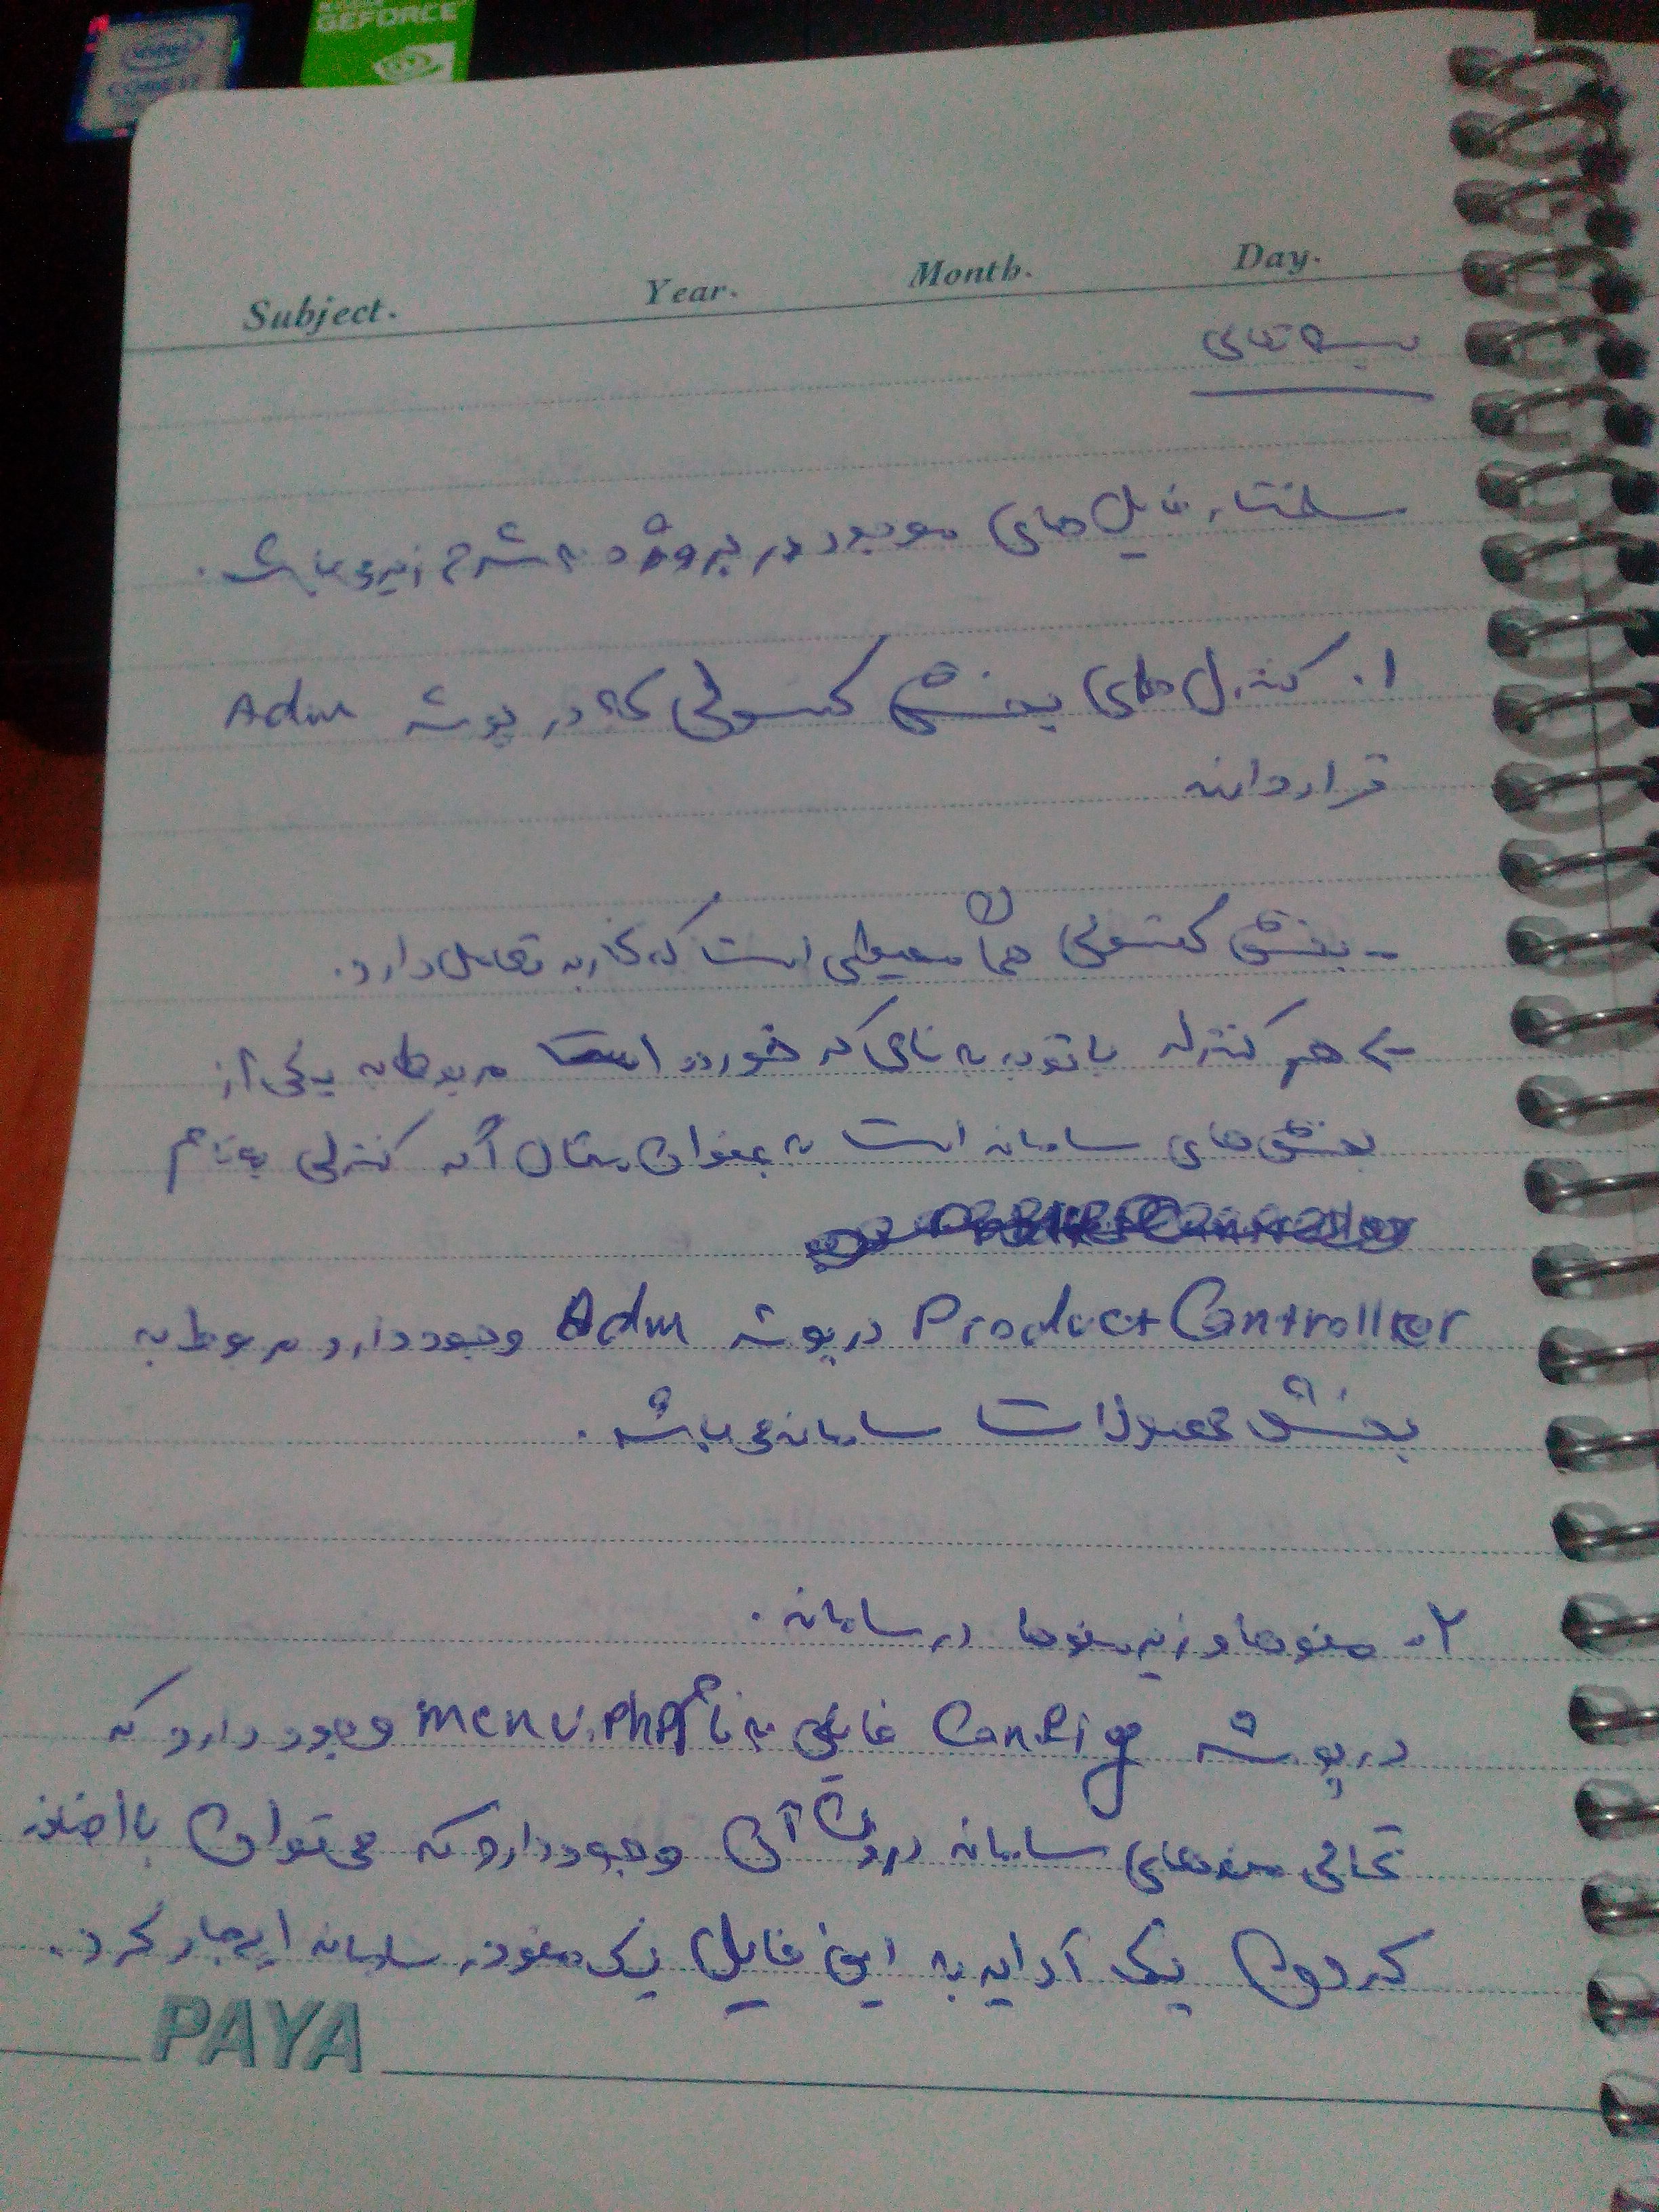 intel CORE i7
GEFORCE
Subject. Year. Month. Day.
بسمه تعالی
ساختار فایل‌های موجود در پروژه به شرح زیر می‌باشد.
۱. کنترلرهای بخش کنسولی که در پوشه Adm
قرار دارند
- بخش کنسولی همان محیطی است که کاربر تعامل دارد.
هر کنترلر با توجه به نامی که خورده است مربوط به یکی از
بخش‌های سامانه است به عنوان مثال اگر کنترلری به نام
ProductController در پوشه Adm وجود دارد مربوط به
بخش محصولات سامانه می‌باشد.
۲. منوها و زیرمنوها در سامانه.
در پوشه Config فایلی به نام menu.php وجود دارد که
تمامی منوهای سامانه درون آن وجود دارد که می‌توان با اضافه
کردن یک آرایه به این فایل یک منو در سامانه ایجاد کرد.
PAYA